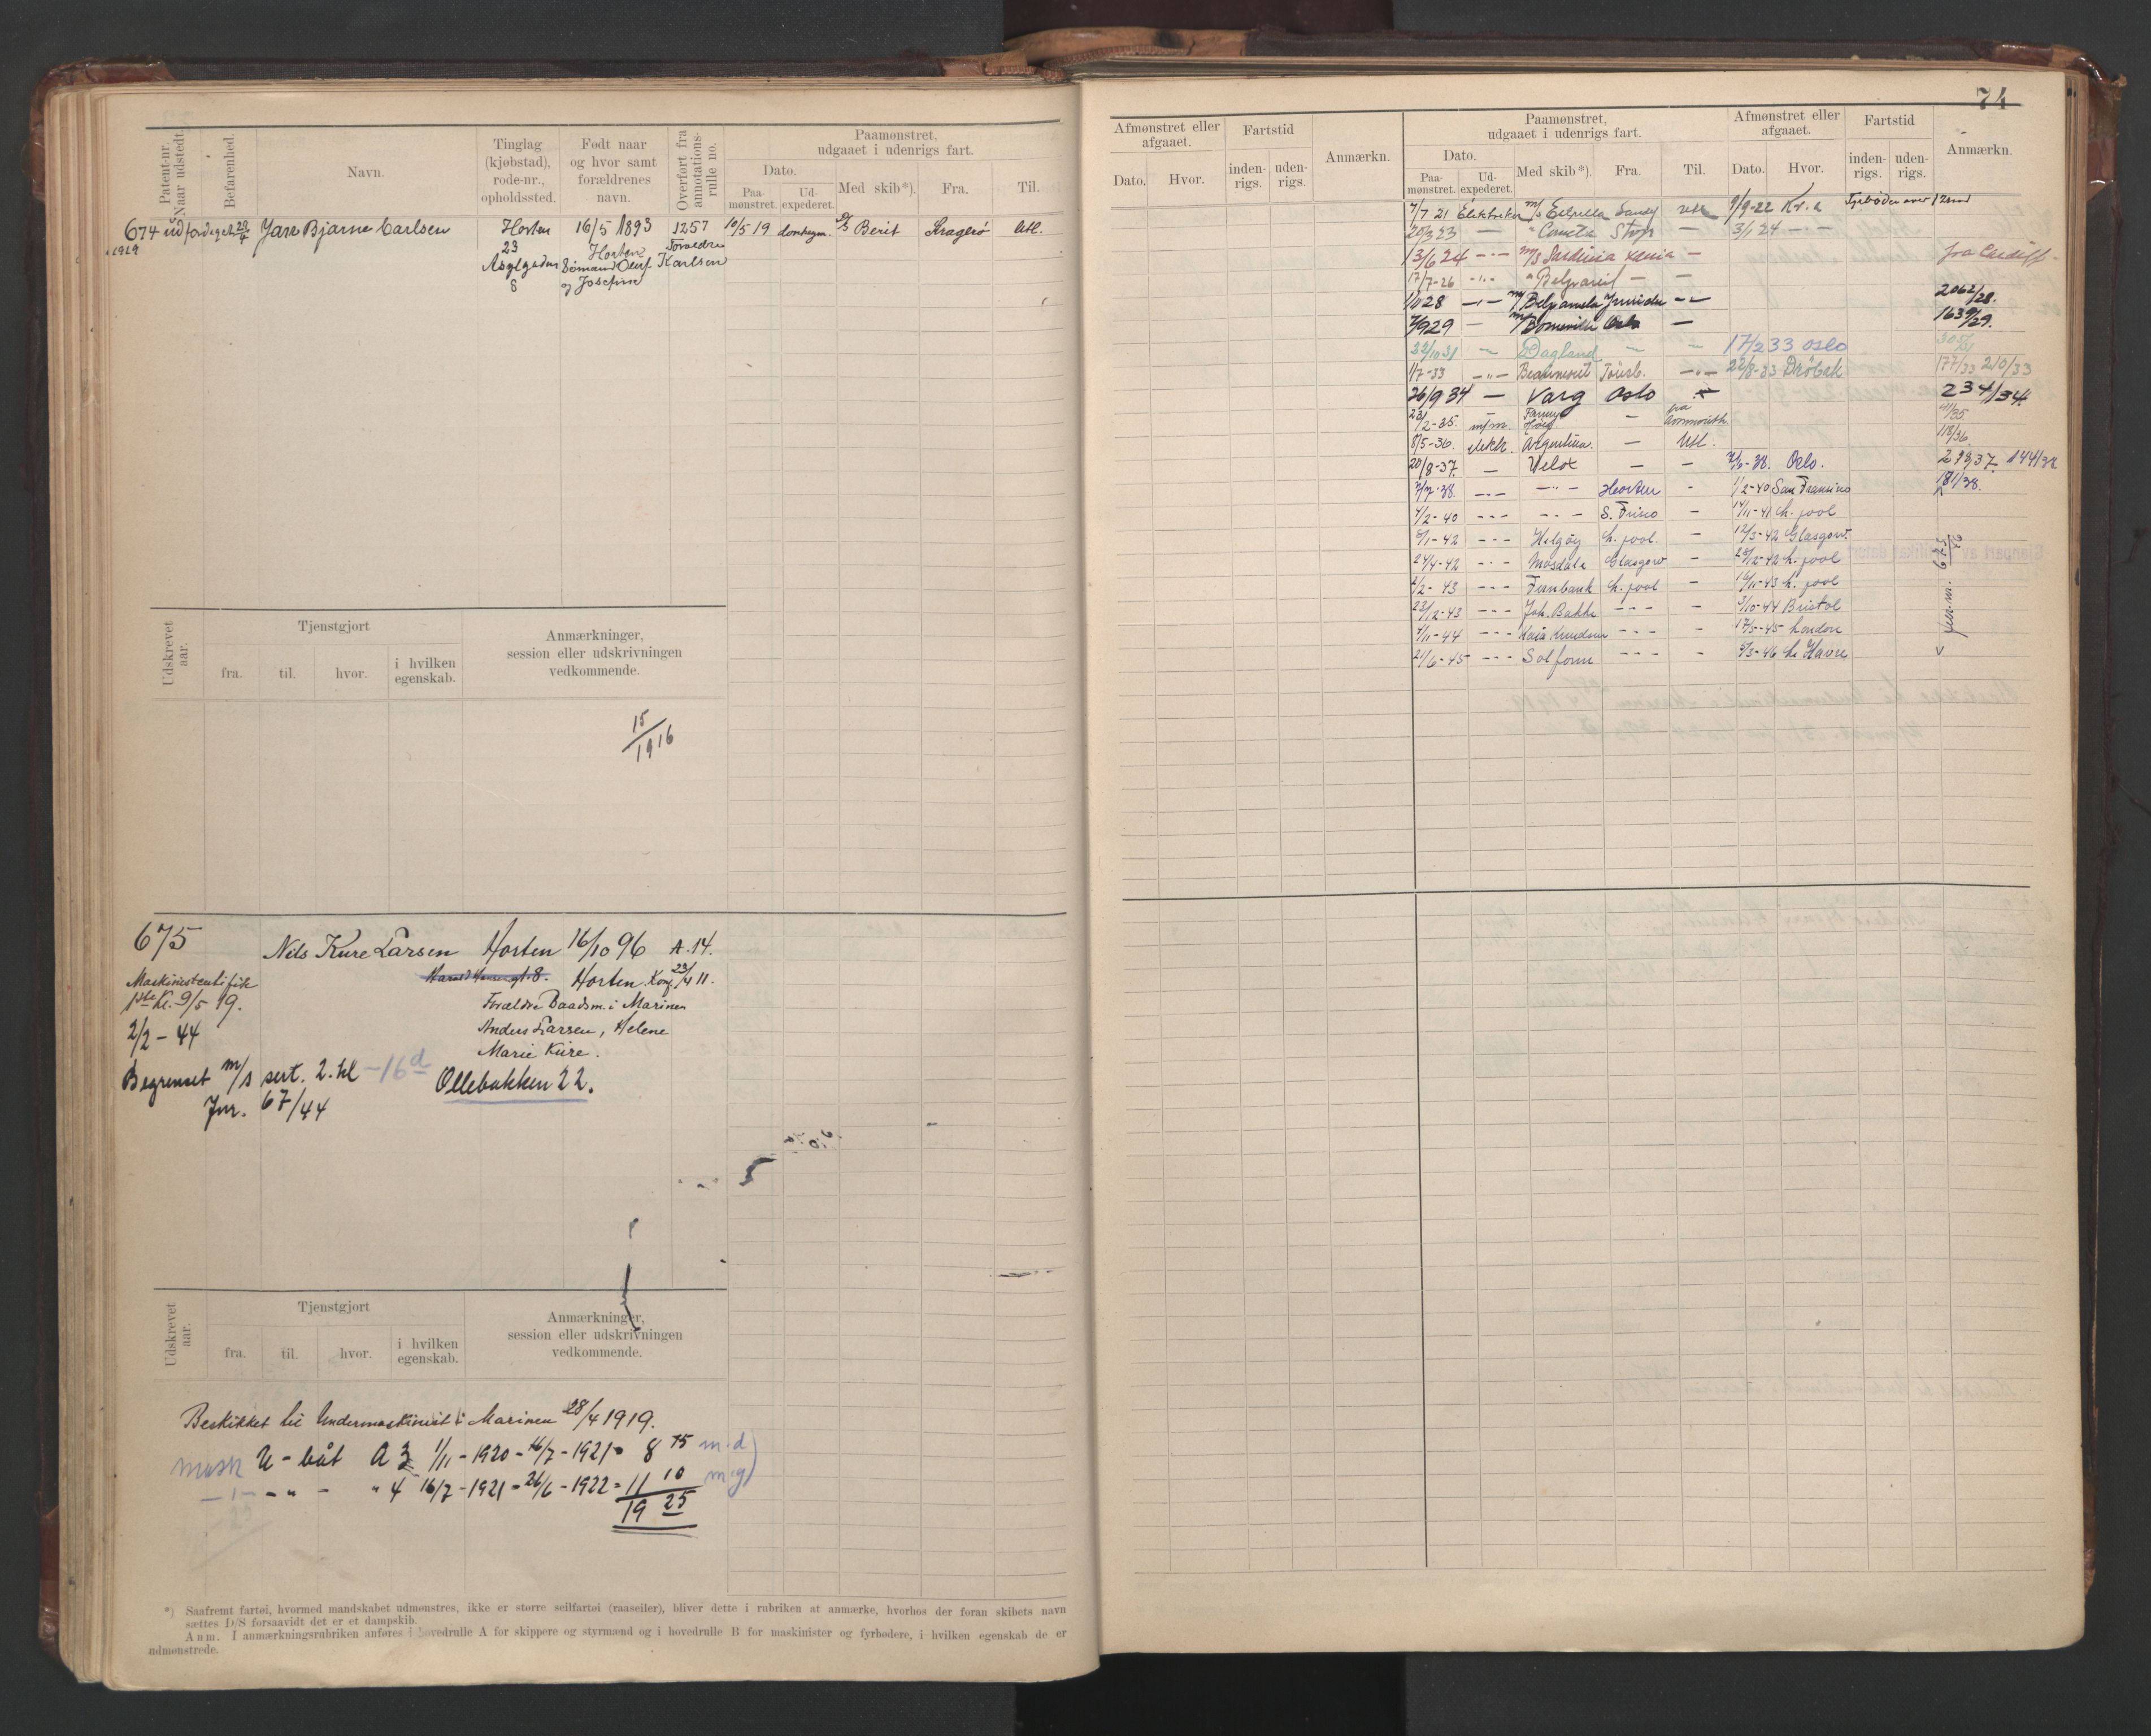 74
Patent-nr. Naar udstedt.
Befarenhed.
Navn.
Tinglag (kjøbstad), rode-nr., opholdssted.
Født naar og hvor samt forældrenes navn.
Overført fra annotations-rulle no.
Paamønstret, udgaaet i udenrigs fart.
Dato.
Paa-mønstret.
Ud-expederet.
Med skib*).
Fra.
Til.
674 1919
Bjarne Carlsen
Horten 23
8
16/5 1893
Horten
Sømand Oluf Karlsen
og Josefine
1257
Forældre
10/5 19
D/S Berit
Kragerø
Utl.
Udskrevet aar.
Tjenstgjort
fra.
til.
hvor.
i hvilken egenskab.
Anmærkninger, session eller udskrivningen vedkommende.
15/1916
675
Nils Kure Larsen
Horten 16/10 96 A. 14.
Horten. Konf. 23/4 11.
Maskinistcertifik
1ste Kl. 9/5 19.
Forældre Baadsm. i Marinen
Anders Larsen, Helene
Marie Kure.
2/2 - 44
Begrenset m/s sert. 2. kl - 16 d
Ollebakken 22.
Jnr. 67/44
Udskrevet aar.
Tjenstgjort
fra.
til.
hvor.
i hvilken egenskab.
Anmærkninger, session eller udskrivningen vedkommende.
Beskikket til Undermaskinist i Marinen 28/4 1919.
mask U-båt A 3 1/11 - 1920 - 16/7 - 1921 = 8 15 m.d
" 4 16/7 - 1921 - 26/6 - 1922 = 11 10 m.g
19 25
*) Saafremt fartøi, hvormed mandskabet udmønstres, ikke er større seilfartøi (raaseiler), bliver dette i rubriken at anmærke, hvorhos der foran skibets navn
sættes D/S forsaavidt det er et dampskib.
Anm. I anmærkningsrubriken anføres i hovedrulle A for skippere og styrmænd og i hovedrulle B for maskinister og fyrbødere, i hvilken egenskab de er
udmønstrede.
Afmønstret eller afgaaet.
Dato.
Hvor.
Fartstid
inden-rigs.
uden-rigs.
Anmærkn.
Paamønstret, udgaaet i udenrigs fart.
Dato.
Paa-mønstret.
Ud-expederet.
Med skib*).
Fra.
Til.
Afmønstret eller afgaaet.
Dato.
Hvor.
Fartstid
inden-rigs.
uden-rigs.
Anmærkn.
7/7 21 Elektriker m/s 9/9-22 Kr.a Fyrbøder over 12 mnd
20/3 23 — " Cometa — 3/1 24 — " —
13/6 24 — " — m/s Sardinia — fra Cardiff
17/7-26 — " — " — —
28 — " — — " — 2062/28.
7/9 29 — Oslo — 1639/29.
31 — Dagland — — 17/2 33 Oslo
1/7-33 — " — Tønsb. — " — 22/8-33 Drøbak 177/33 210/33
26/9 34 — Varg Oslo 234/34.
23/2-35. Fanny Høegh — fra
8/5-36 elektr. Argentina — Utl. 118/36
20/8-37. — Velox — — 38. Oslo. 144/38
7/7-38. — " — — " — Horten - 1/2-40 San Fransisco 181/38.
4/2-40 --- --- S. Frisco - 14/11-41 L. pool
8/1-42 --- Helgøy L. pool. - 12/3-42 Glasgow.
24/4-42 --- Mosdale Glasgow - L. pool
2/2-43 --- Fernbank L. pool - 16/11-43 L. pool
23/12-43 --- Joh. Bakke --- - 3/10-44 Bristol
4/11-44 --- Kaia Knudsen --- - 17/5-45 London
21/6-45 --- Solfonn --- - 5/3-46 Le Havre